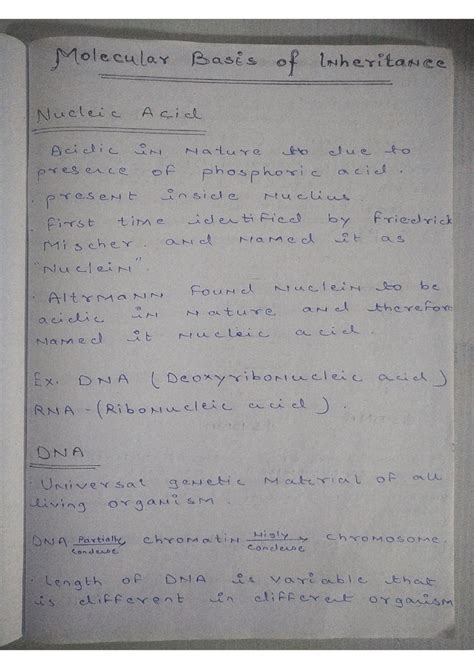 Molecular Basis of Inheritance
Nucleic Acid
Acidic in Nature to due to
presence of phosphoric acid.
· present inside Nuclius.
· first time identified by Friedrick
Mischer. and Named it as
"Nuclein".
· Altrmann found Nuclein to be
acidic in Nature and therefore
Named it Nucleic acid.
Ex. DNA (Deoxyribonucleic acid)
RNA - (Ribonucleic acid).
DNA
· Universal genetic Material of all
living organism.
DNA Partially Condense chromatin Higly Condense chromosome.
· length of DNA is variable that
is different in different organism